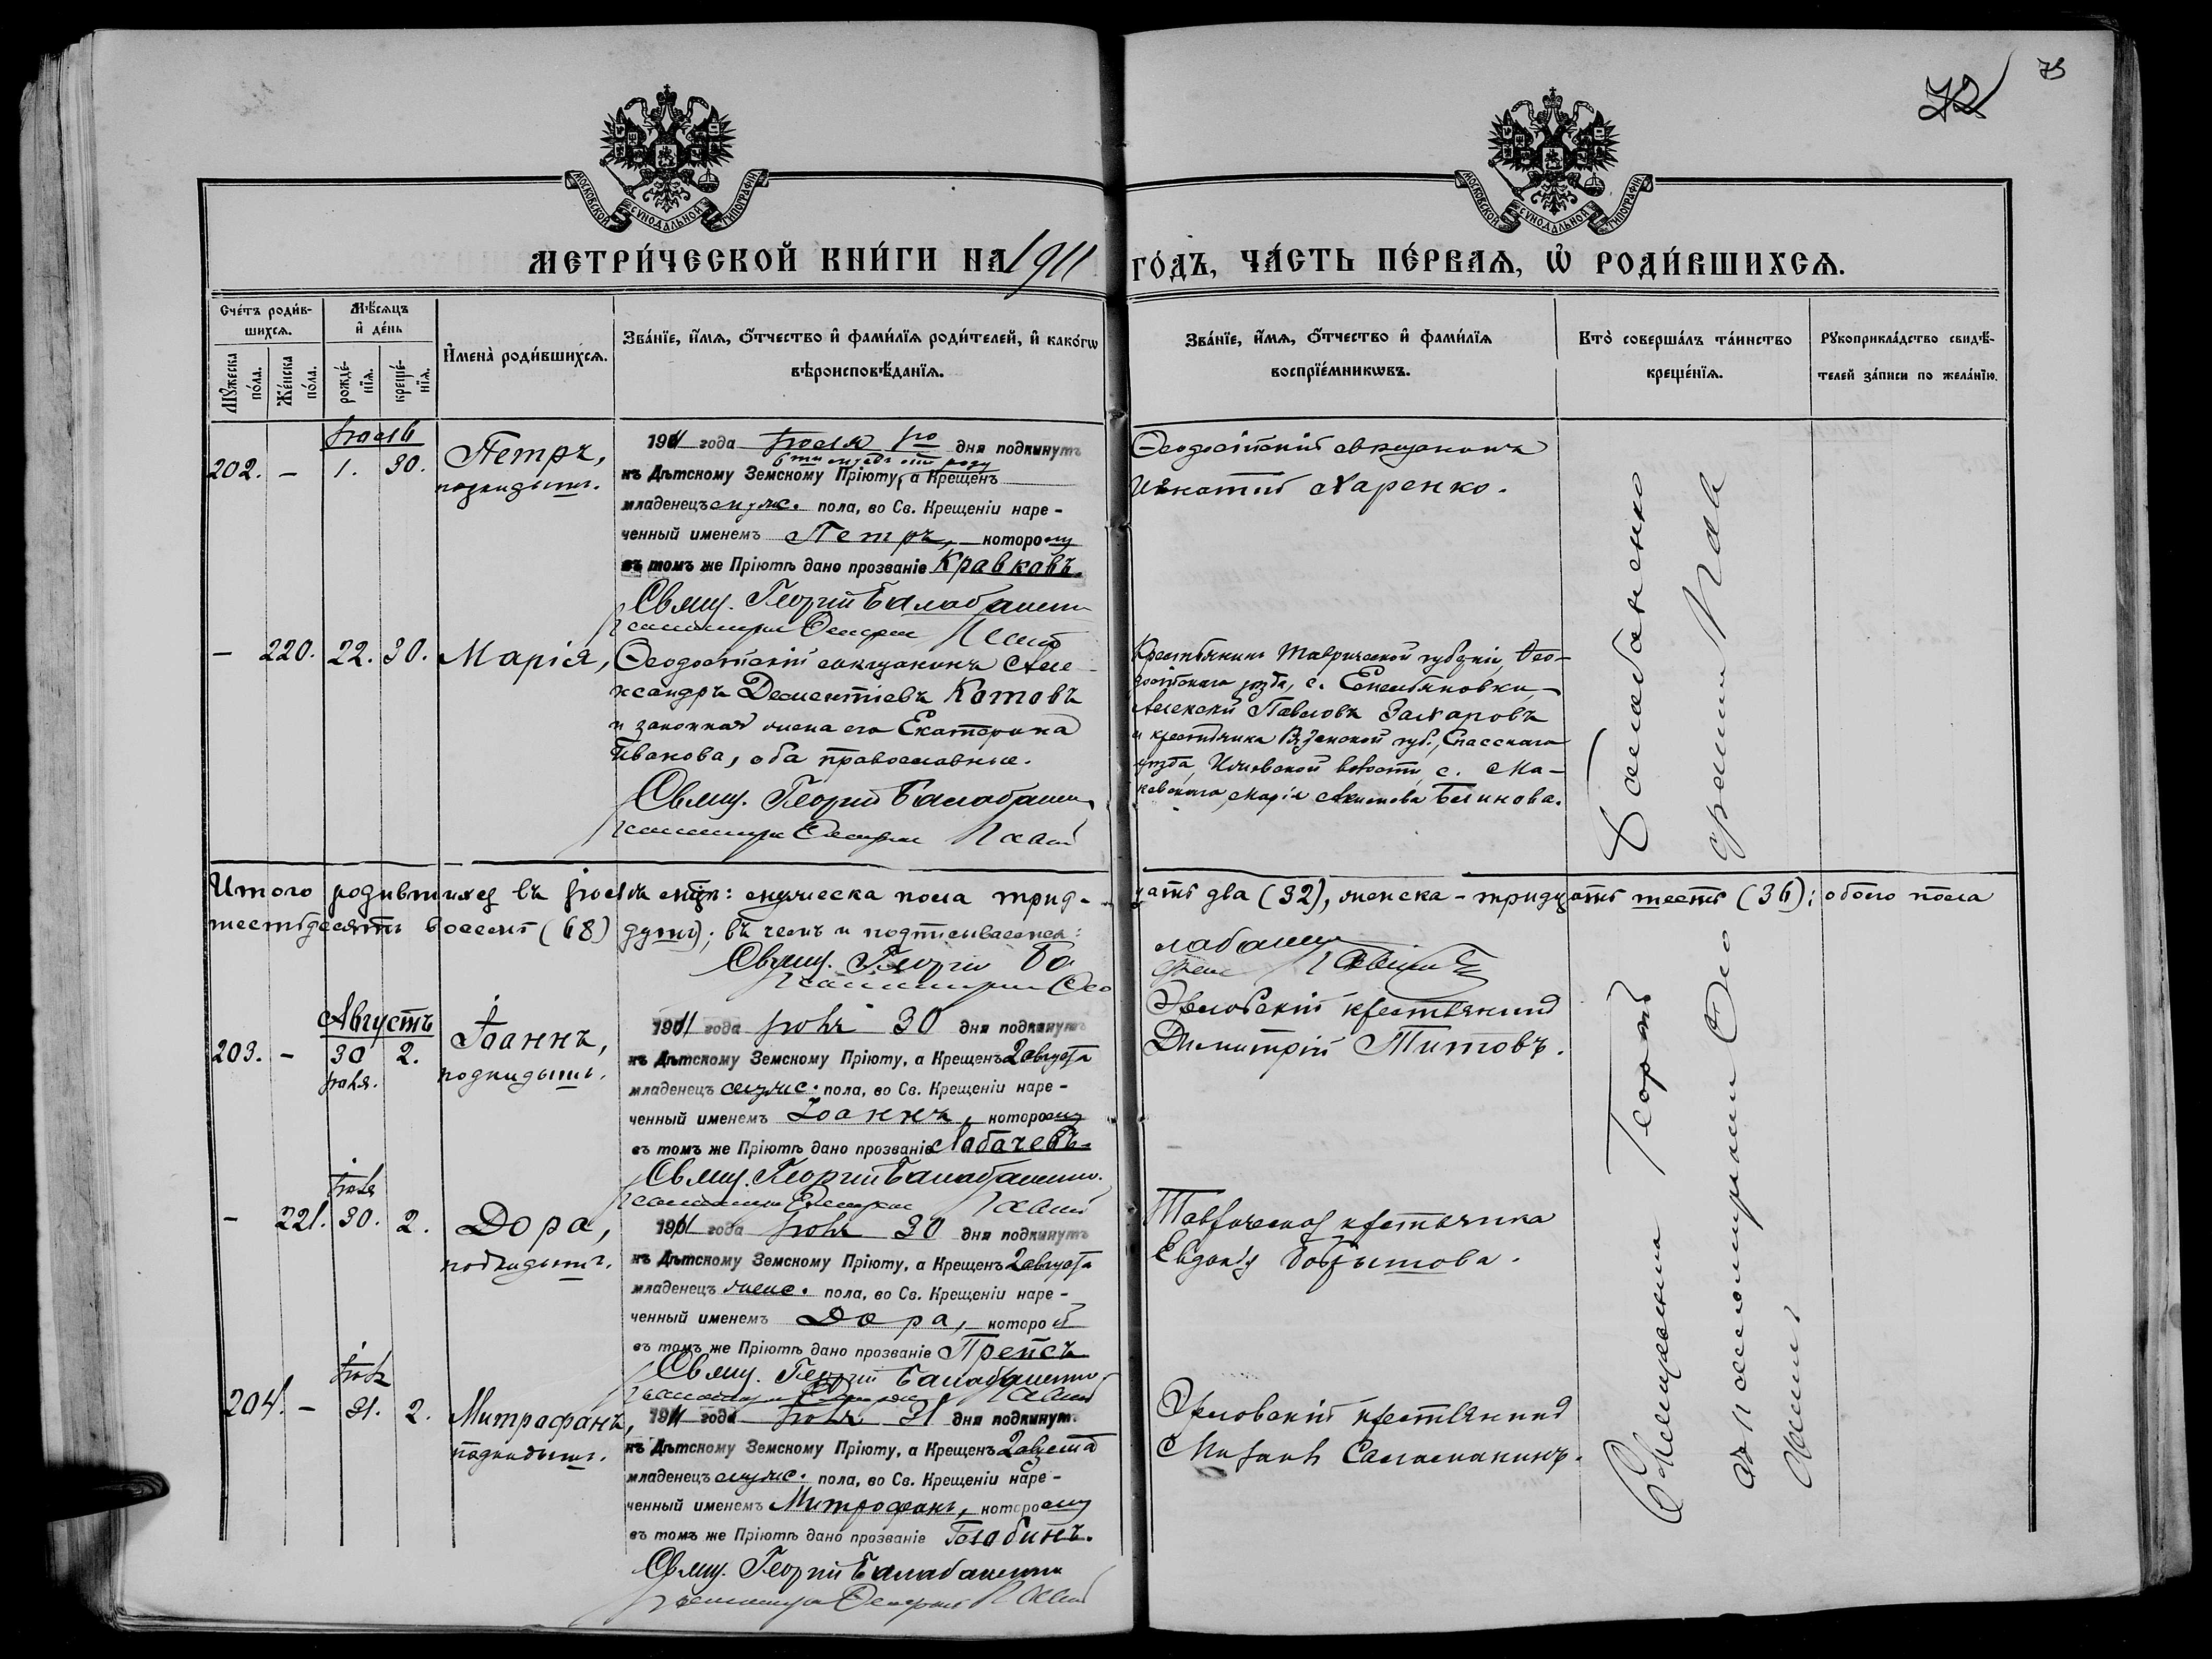 75
72
МОСКОВСКОЙ СѴНОДАЛЬНОЙ ТИПОГРАФІИ
МОСКОВСКОЙ СѴНОДАЛЬНОЙ ТИПОГРАФІИ
МЕТРИ́ЧЕСКОЙ КНИ́ГИ НА 1911 ГО́ДЪ, ЧА́СТЬ ПЕ́РВАЯ, Ѡ҆ РОДИ́ВШИХСЯ.
Сче́тъ роди́в-
шихся.
Мѣ́сяцъ
и҆ де́нь
Мꙋ́жеска
по́ла.
Же́нска
по́ла.
рожде́-
нїя.
креще́-
нїя.
И҆мена̀ роди́вшихся.
Зва́нїе, и҆́мя, ѻ҆́тчество и҆ фами́лїя роди́телей, и҆ како́гѡ
вѣроисповѣ́данїя.
Зва́нїе, и҆́мя, ѻ҆́тчество и҆ фами́лїя
воспрїе́мникѡвъ.
Кто̀ соверша́лъ та́инство
креще́нїя.
Рꙋкоприкла́дство свидѣ́-
телей за́писи по жела́нїю.
Іюль
202. – 1. 30. Петръ,
подкидышъ.
1911 года Іюля дня подкинутъ
къ Дѣтскому Земскому Пріюту, а Крещенъ
младенецъ муж. пола, во Св. Крещеніи наре-
ченный именемъ Петръ, которому
въ томъ же Пріютѣ дано прозваніе Кравковъ.
Свящ. Георгій Балабаненко
Ѳеодосійскій мѣщанинъ
Игнатій Харенко.
– 220. 22. 30. Марія,
Ѳеодосійскій мѣщанинъ Але-
ксандръ Дементіевъ Котовъ
и законная жена его Екатерина
Иванова, оба православные.
Свящ. Георгій Балабаненко
Крестьянинъ Таврической губерніи, Ѳео-
досійскаго уѣзда, с. Емельяновки,
Алексѣй Павловъ Захаровъ
и крестьянка Рязанской губ., Спасскаго
уѣзда, волости, с. Ма-
ковскаго, Марія Акимова Блинова.
Балабаненко
Итого родившихся въ Іюлѣ мцѣ: мужеска пола трид-цать два (32), женска – тридцать шесть (36); обоего пола
шестьдесятъ восемь (68) душъ); въ чемъ и подписываемся:
Свящ. Георгій Балабаненко
Августъ
203. – 30 2. Іоаннъ,
Іюля. подкидышъ.
1911 года Іюля 30 дня подкинутъ
къ Дѣтскому Земскому Пріюту, а Крещенъ 2 августа
младенецъ муж. пола, во Св. Крещеніи наре-
ченный именемъ Іоаннъ, которому
въ томъ же Пріютѣ дано прозваніе Лабачевъ.
Свящ. Георгій Балабаненко.
Орловскій крестьянинъ
Димитрій Титовъ.
Іюля
– 221. 30. 2. Дора,
подкидышъ.
1911 года Іюля 30 дня подкинутъ
къ Дѣтскому Земскому Пріюту, а Крещенъ 2 августа
младенецъ женс. пола, во Св. Крещеніи наре-
ченный именемъ Дора, которой
въ томъ же Пріютѣ дано прозваніе Препсъ
Свящ. Георгій Балабаненко
Таврическая крестьянка
Евдокія
Іюля
204. – 31. 2. Митрофанъ,
подкидышъ.
1911 года Іюля 31 дня подкинутъ
къ Дѣтскому Земскому Пріюту, а Крещенъ 2 августа
младенецъ муж. пола, во Св. Крещеніи наре-
ченный именемъ Митрофанъ, которому
въ томъ же Пріютѣ дано прозваніе Бабинъ.
Свящ. Георгій Балабаненко
Орловскій крестьянинъ
Священникъ Георгій